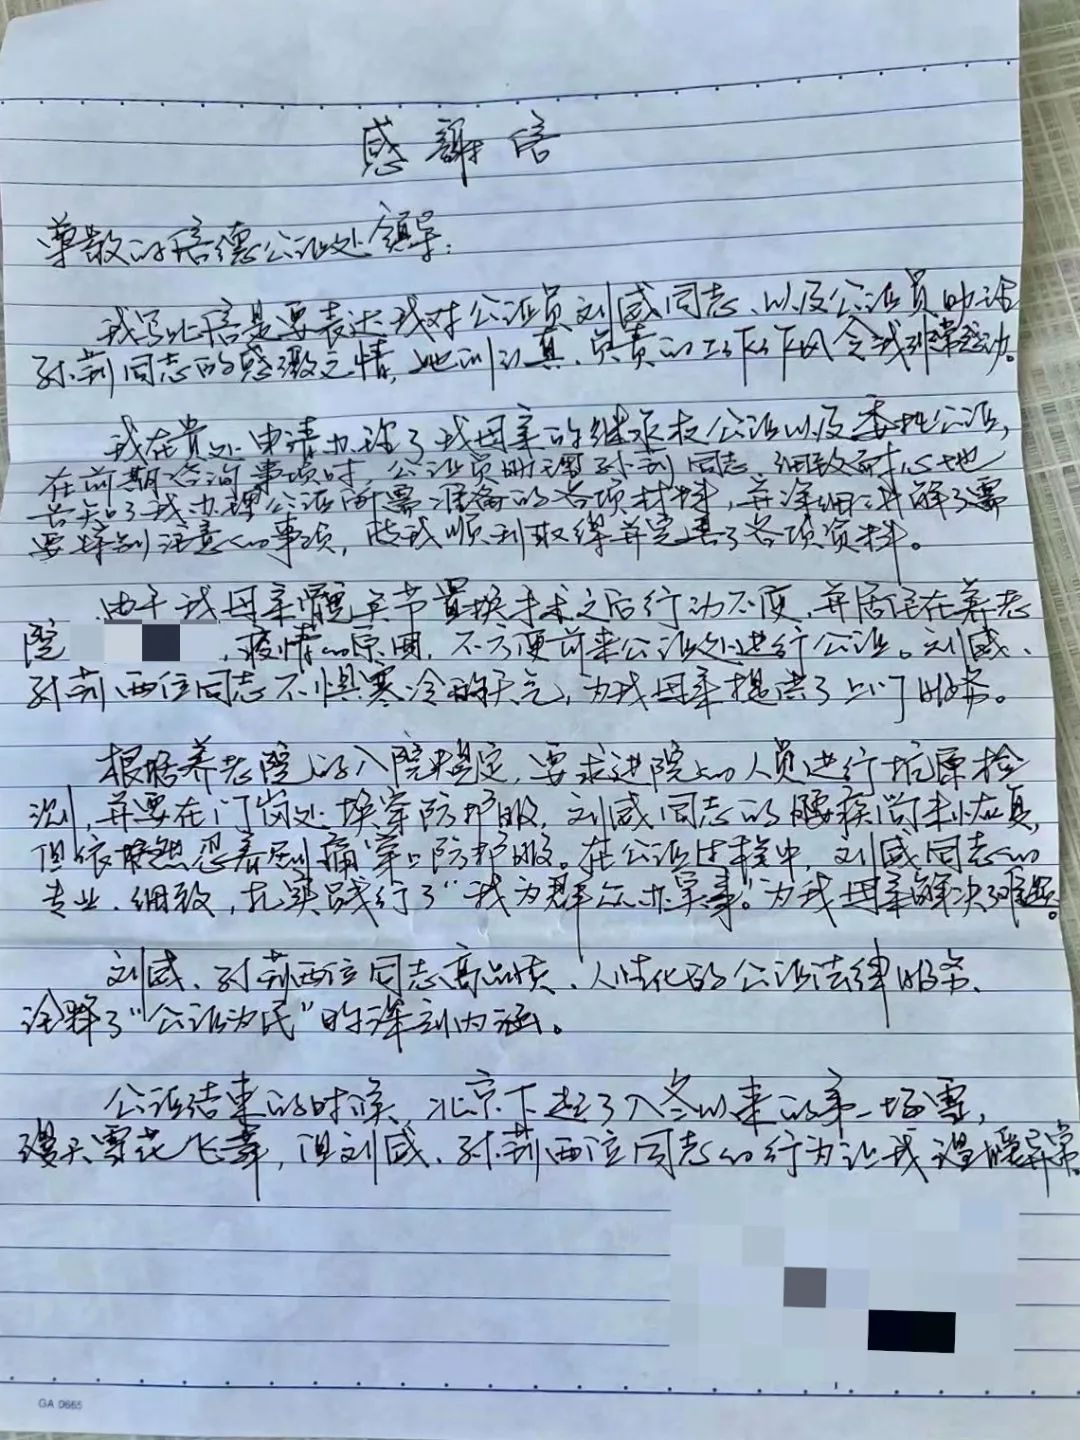 感谢信
尊敬的信德公证处领导：
我写此信是要表达我对公证员刘威同志、以及公证员助理
孙莉同志的感激之情，她们认真、负责的工作作风令我非常感动。
我在贵处申请办理了我母亲的继承权公证以及委托公证，
在前期咨询事项时，公证员助理孙莉同志、细致耐心地
告知了我办理公证所需准备的各项材料，并详细讲解了需
要特别注意的事项，使我顺利取得并完善了各项资料。
由于我母亲髋关节置换手术之后行动不便，并居住在养老
院，疫情的原因，不方便前来公证处进行公证。刘威、
孙莉两位同志不惧寒冷的天气，为我母亲提供了上门服务。
根据养老院的入院规定，要求进院的人员进行抗原检
测，并要在门岗处换穿防护服，刘威同志的腰疾尚未恢复，
但依然忍着剧痛穿上防护服。在公证过程中，刘威同志的
专业、细致，扎实践行了“我为群众办实事”。为我母亲解决了难题。
刘威、孙莉两位同志高品质、人性化的公证法律服务、
诠释了“公证为民”的深刻内涵。
公证结束的时候，北京下起了入冬以来的第一场雪，
漫天雪花飞舞，但刘威、孙莉两位同志的行为让我温暖异常。
GA 0665